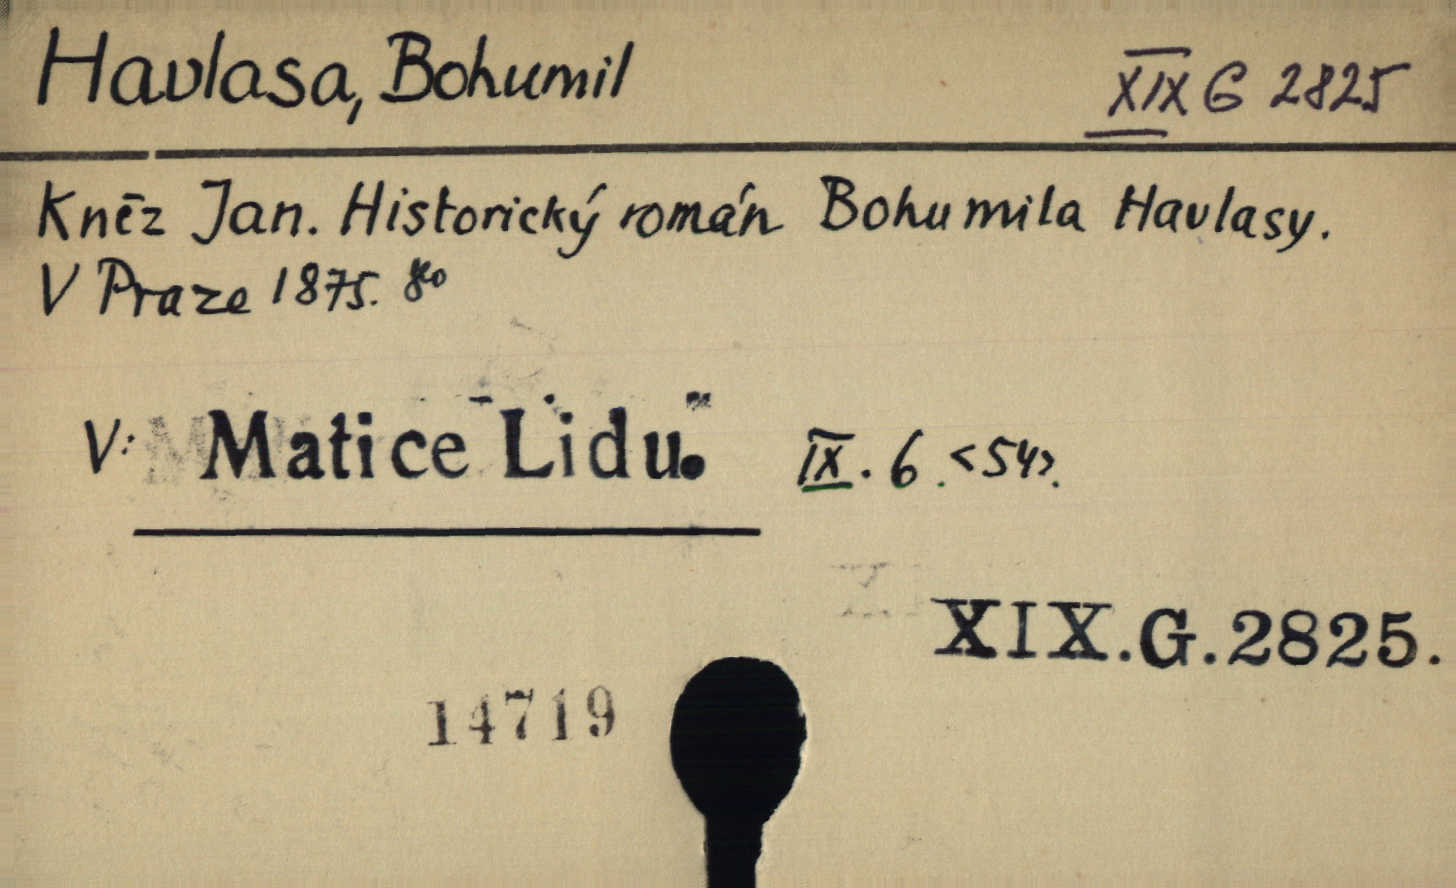 Havlasa, Bohumil XIX G 2825
Kněz Jan. Historický román Bohumila Havlasy.
V Praze 1875. 8o
V: Matice Lidu. IX. 6. <54>.
XIX.G.2825.
14719